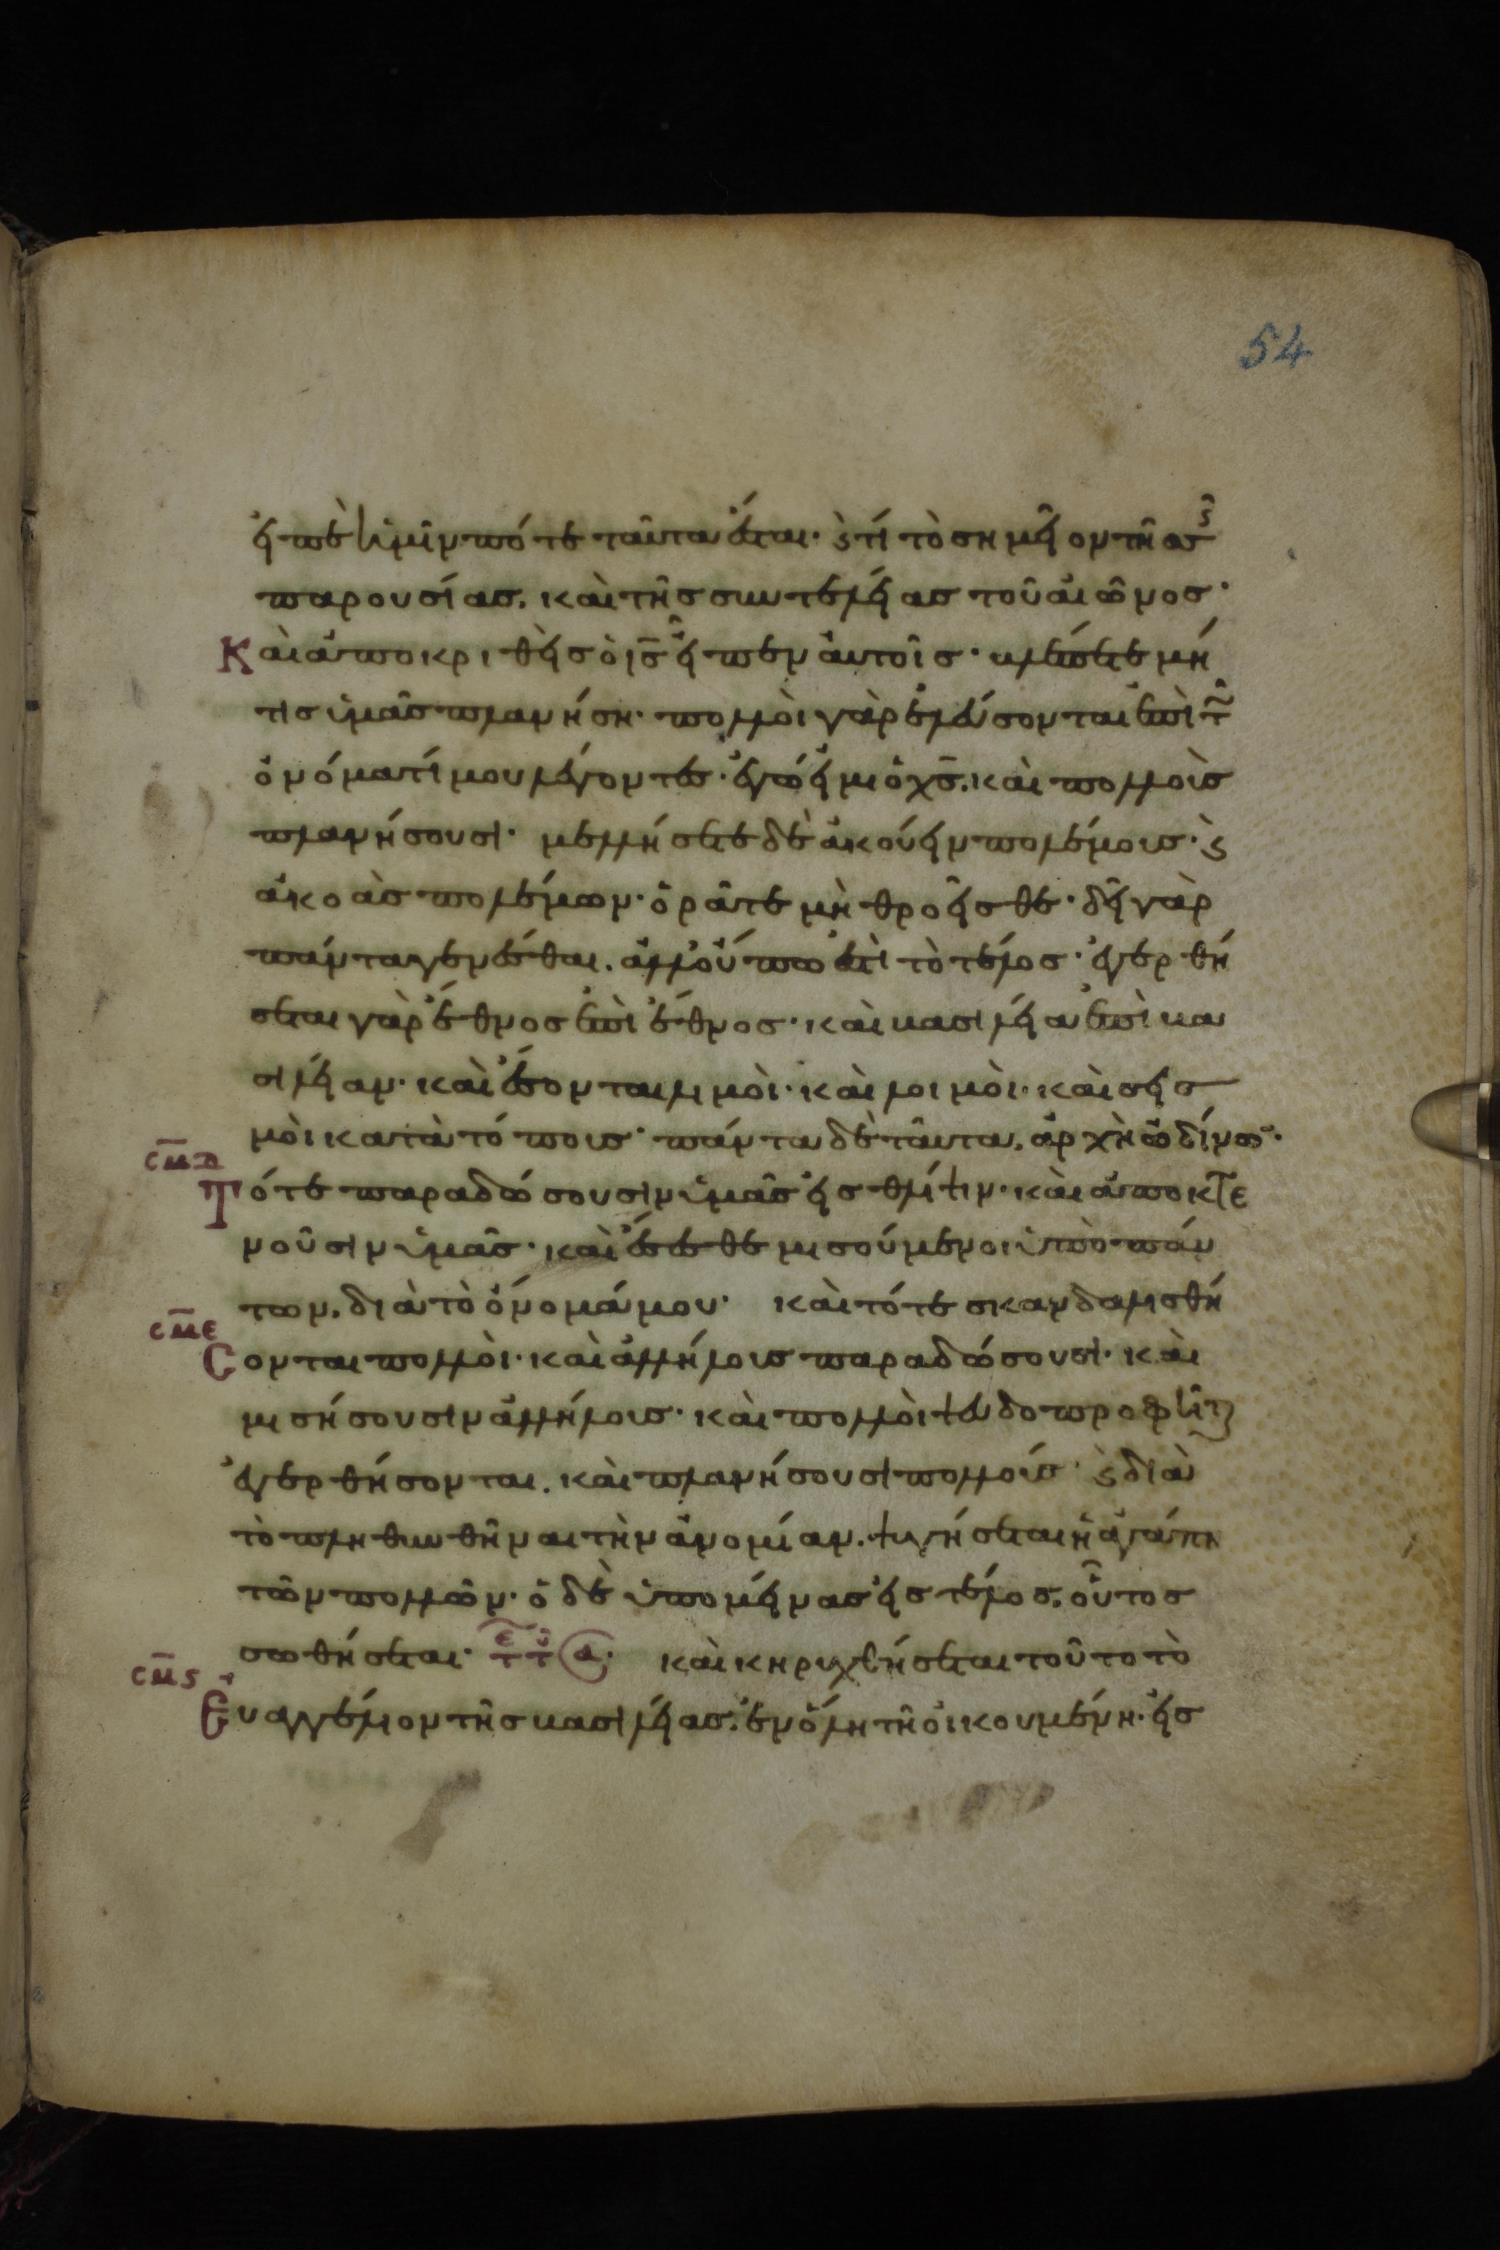 54
εἰπὲ ἡμῖν πότε ταῦτα ἔσται· ϗ τί τὸ σημεῖον τῆς σῆς
παρουσίας, καὶ τῆς συντελείας τοῦ αἰῶνος·
Καὶ ἀποκριθεὶς ὁ ις̅ εἶπεν αὐτοῖς· βλέπετε μή
τις ὑμᾶς πλανήση· πολλοὶ γὰρ ἐλεύσονται ἐπὶ τῶ
ὀνόματί μου λέγοντες· ἐγώ εἰμι ὁ χς̅, καὶ πολλοὺς
πλανήσουσι· μελλήσετε δὲ ἀκούειν πολέμους· ϗ
ἀκοὰς πολέμων· ὁρᾶτε μὴ θροεῖσθε· δεῖ γὰρ
πάντα γενέσθαι. ἀλλ' οὔπω ἐστὶ τὸ τέλος· ἐγερθή
σεται γὰρ ἔθνος ἐπὶ ἔθνος· καὶ βασιλεία ἐπὶ βα
σιλείαν· καὶ ἔσονται λιμοὶ· καὶ λοιμοὶ· καὶ σεισ
μοὶ κατὰ τόπους· πάντα δὲ ταῦτα, ἀρχὴ ὠδίνων·
σμ̅δ
Τότε παραδώσουσιν ὑμᾶς εἰς θλίψιν· καὶ ἀποκτε
νοῦσιν ὑμᾶς· καὶ ἔσεσθε μισούμενοι ὑπὸ πάν
των, διὰ τὸ ὄνομά μου· καὶ τότε σκανδαλισθή
σμ̅ε
Σονται πολλοὶ· καὶ ἀλλήλους παραδώσουσι· καὶ
μισήσουσιν ἀλλήλους· καὶ πολλοὶ ψευδοπροφῆται
ἐγερθήσονται. καὶ πλανήσουσι πολλούς· ϗ διὰ
τὸ πληθυνθῆναι τὴν ἀνομίαν. ψυγήσεται ἡ ἀγάπη
τῶν πολλῶν· ὁ δὲ ὑπομείνας εἰς τέλος, οὗτος
σωθήσεται· καὶ κηρυχθήσεται τοῦτο τὸ
σμ̅ς
Εὐαγγέλιον τῆς βασιλείας, ἐν ὅλη τῆ οἰκουμένη· εἰς